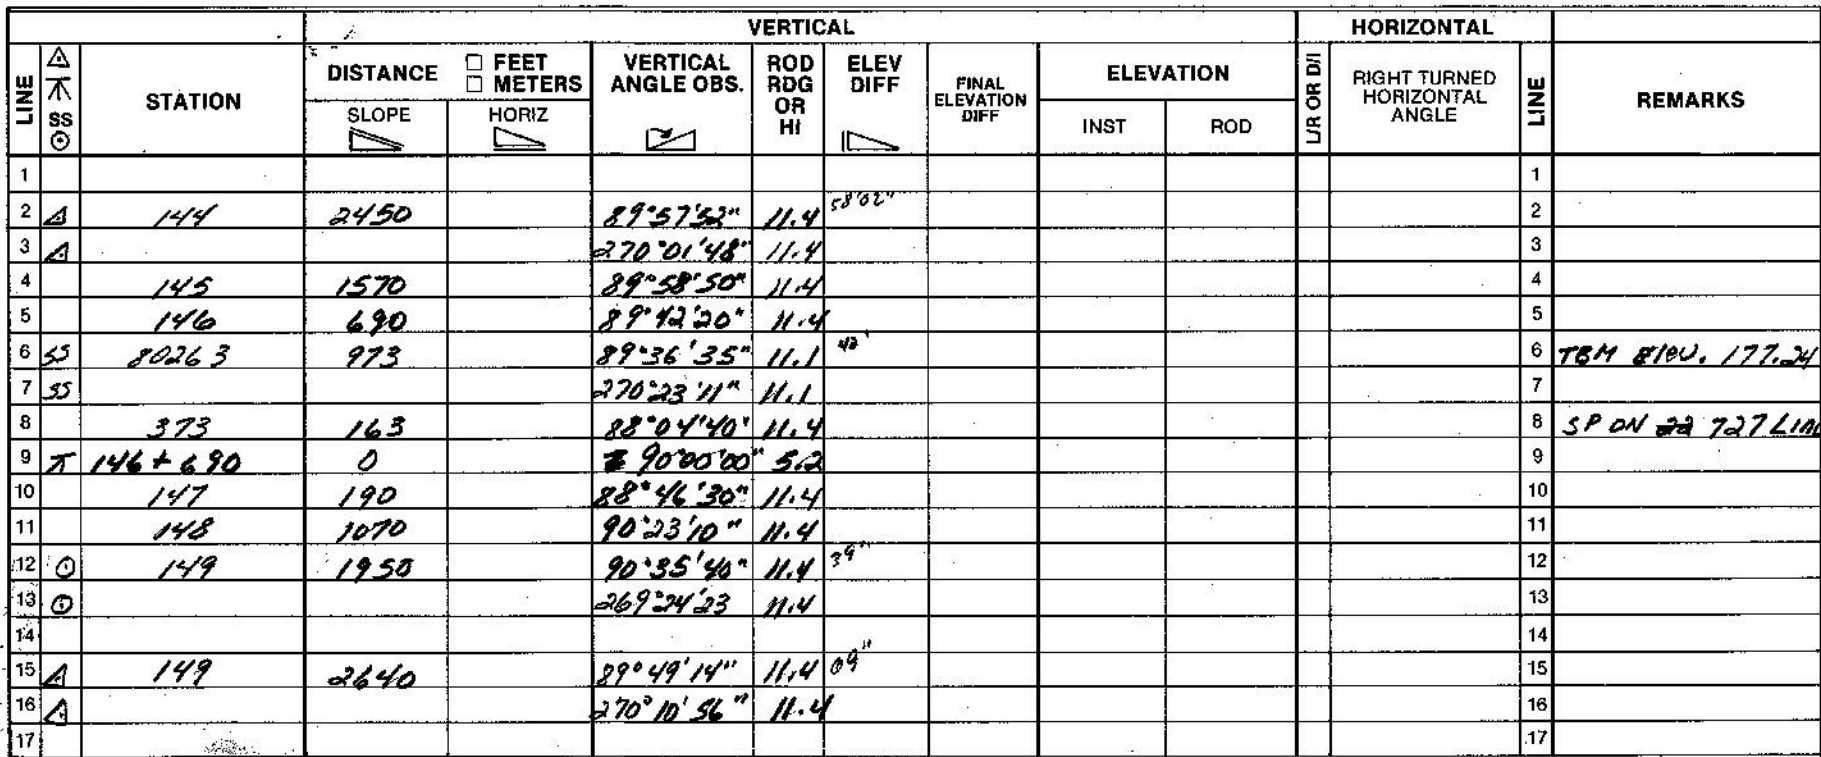 VERTICAL HORIZONTAL
LINE SS STATION DISTANCE □ FEET □ METERS VERTICAL ANGLE OBS. ROD RDG OR HI ELEV DIFF FINAL ELEVATION DIFF ELEVATION L/R OR D/I RIGHT TURNED HORIZONTAL ANGLE LINE REMARKS
SLOPE HORIZ INST ROD
1 1
2 144 2450 89°57'52" 11.4 58'02" 2
3 270°01'48" 11.4 3
4 145 1570 89°58'50" 11.4 4
5 146 690 89°42'20" 11.4 5
6 SS 80263 973 89°36'35" 11.1 42' 6 TBM Elev. 177.24
7 SS 270°23'11" 11.1 7
8 373 163 88°04'40" 11.4 8 SP ON 727 LINE
9 146+690 0 90°00'00" 5.2 9
10 147 190 88°46'30" 11.4 10
11 148 1070 90°23'10" 11.4 11
12 149 1950 90°35'40" 11.4 39" 12
13 269°24'23 11.4 13
14 14
15 149 2640 89°49'14" 11.4 09" 15
16 270°10'56" 11.4 16
17 17